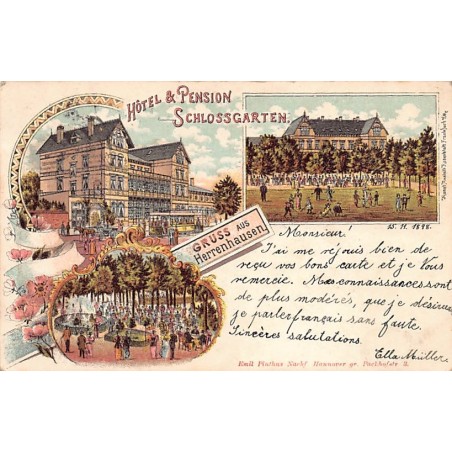 HÔTEL & PENSION
SCHLOSSGARTEN.
GRUSS AUS
Herrenhausen!
15. 11. 1898.
Monsieur!
J'ai me réjouis bien de
reçu vos bons carte et je Vous
remercie. Mas connaissances sont
de plus modérés, que je désirue
je parler français sans faute.
Sincères salutations.
Ella Müller.
Emil Pinkus Nachf. Hannover gr. Packhofstr. 2.